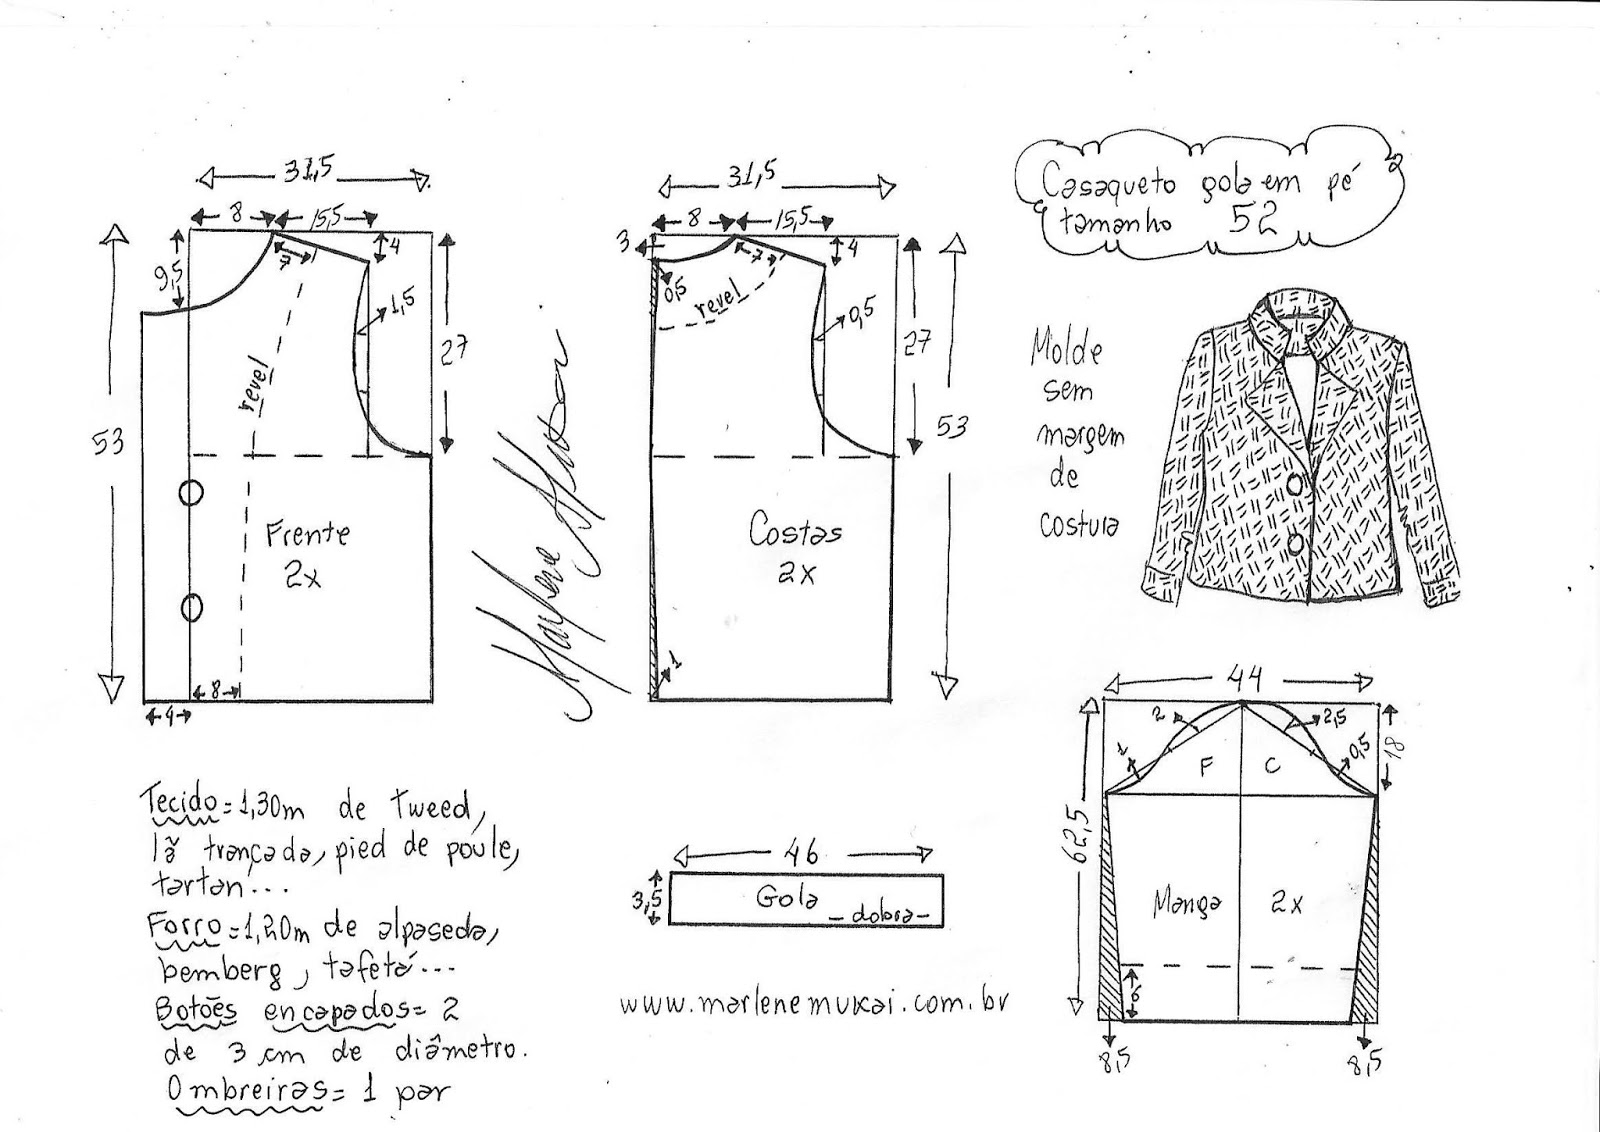 31,5
8
15,5
9,5
7
4
1,5
27
53
revel
Frente
2x
8
4
Marlene Mukai
31,5
8
15,5
3
0,5
7
4
revel
0,5
27
53
Costas
2x
1
Casaqueto gola em pé
tamanho 52
Molde
sem
margem
de
costura
44
2
2,5
1
0,5
18
F
C
62,5
Manga 2x
6
8,5
8,5
46
3,5
Gola
dobra
www.marlenemukai.com.br
Tecido=1,30m de tweed,
lã trançada, pied de poule,
tartan...
Forro=1,20m de alpaseda,
bemberg, tafetá...
Botões encapados= 2
de 3 cm de diâmetro.
Ombreiras= 1 par